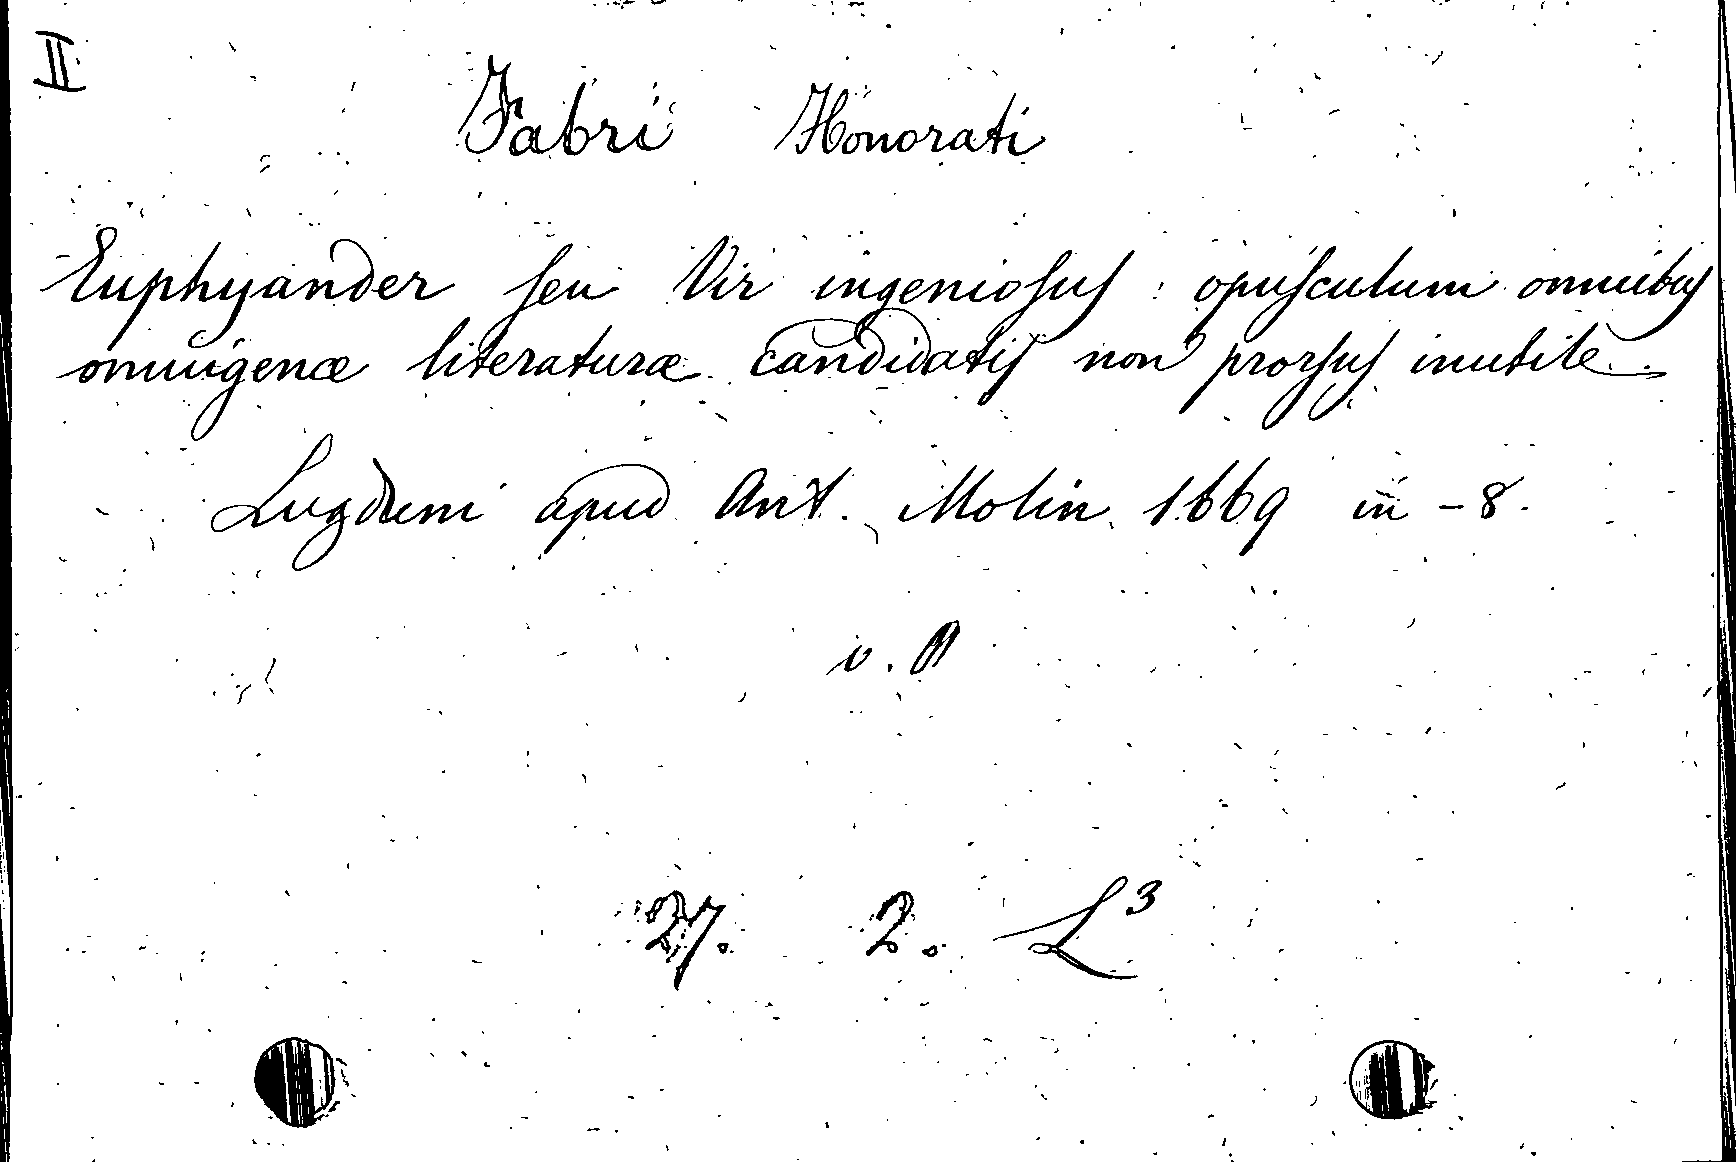 II
Fabri Honorati
Euphyander seu Vir ingeniosus : opusculum omnibus
omnigenæ literaturæ candidatis non prorsus inutile
Lugduni apud Ant. Molin 1669 in - 8.
27. 2. L³